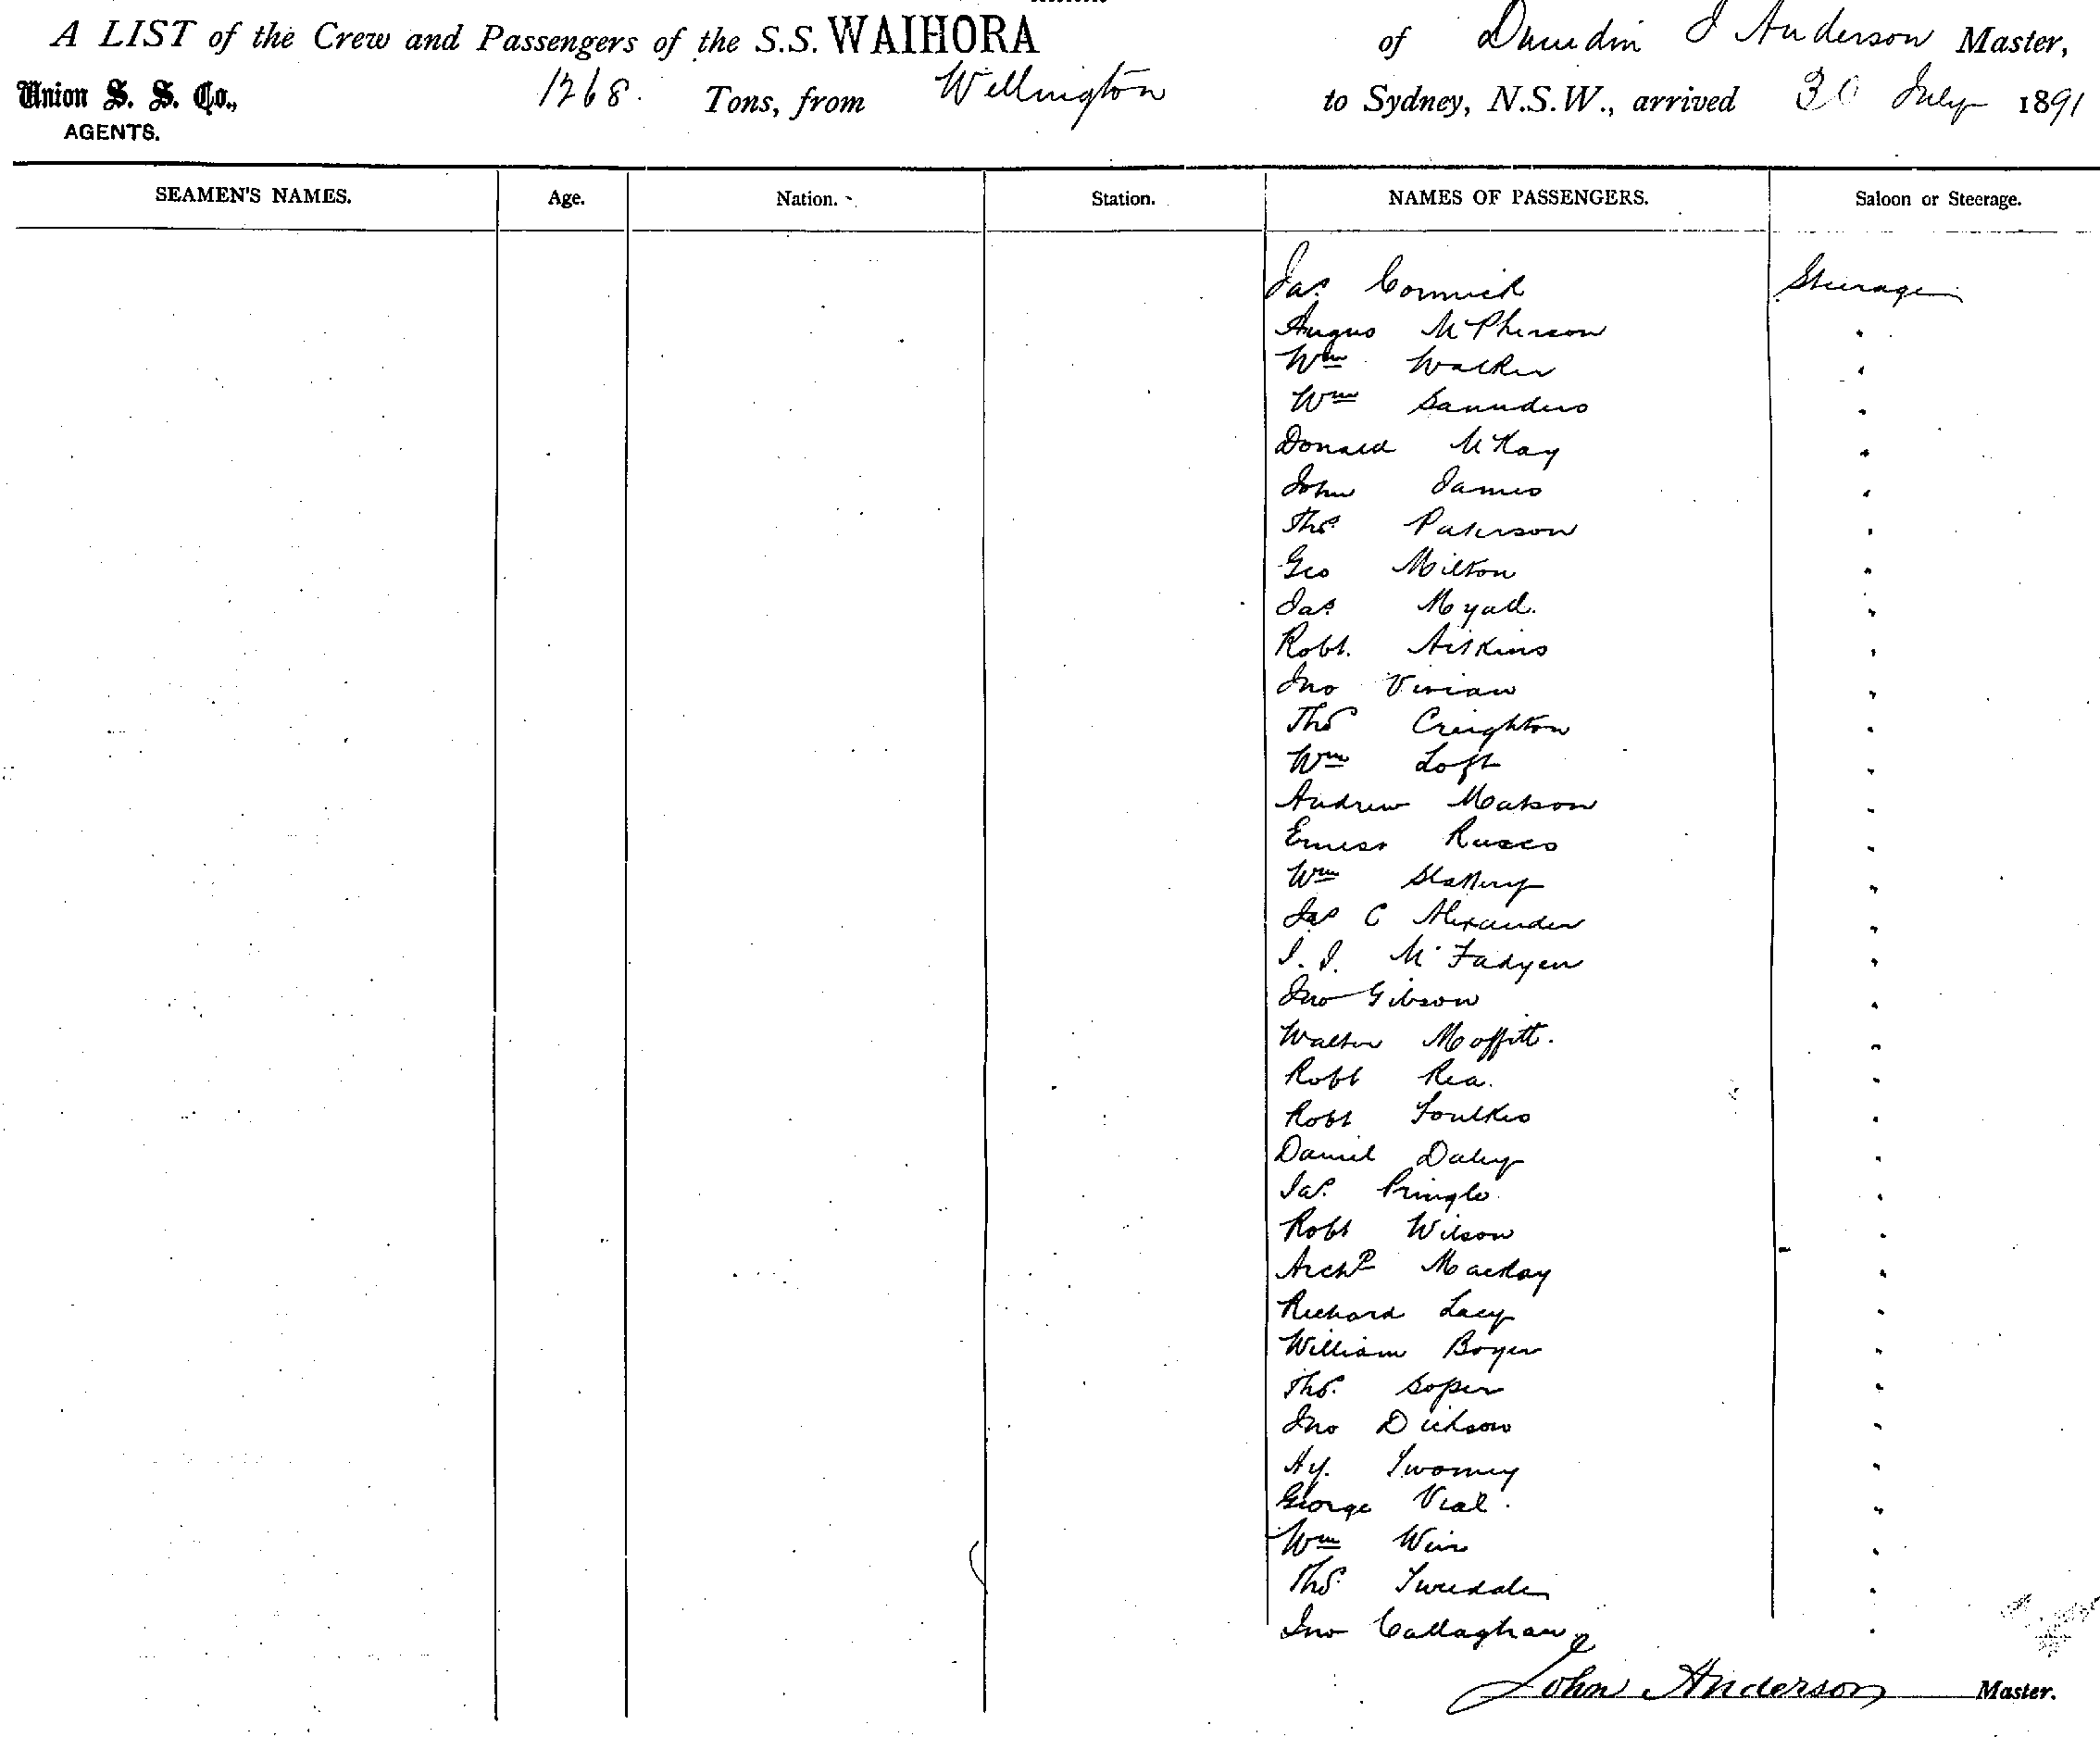 A LIST of the Crew and Passengers of the S.S. WAIHORA of Dunedin J Anderson Master,
Union S. S. Co., 1268. Tons, from Wellington to Sydney, N.S.W., arrived 30 July 1891
AGENTS.
SEAMEN'S NAMES. Age. Nation. Station. NAMES OF PASSENGERS. Saloon or Steerage.
Jas. Cormick Steerage
Angus McPherson "
Wm Walker "
Wm Saunders "
Donald McKay "
John James "
Thos. Paterson "
Geo Milton "
Jas. Myall. "
Robt. Aitkins "
Jno Vivian "
Thos Creighton "
Wm Loft "
Andrew Matson "
Ernest Rusco "
Wm Slattery "
Jas C Alexander "
J. J. McFadyen "
Jno Gibson "
Walter Moffitt. "
Robt Rea. "
Robt Foulkes "
Daniel Daley "
Jas. Pringle "
Robt Wilson "
Archd Mackay "
Richard Lacy "
William Boyer "
Thos. Soper "
Jno Dickson "
Hy. Twomey "
George Vial. "
Wm Weir "
Thos. Tweedale "
Jno Callaghan "
John Anderson Master.